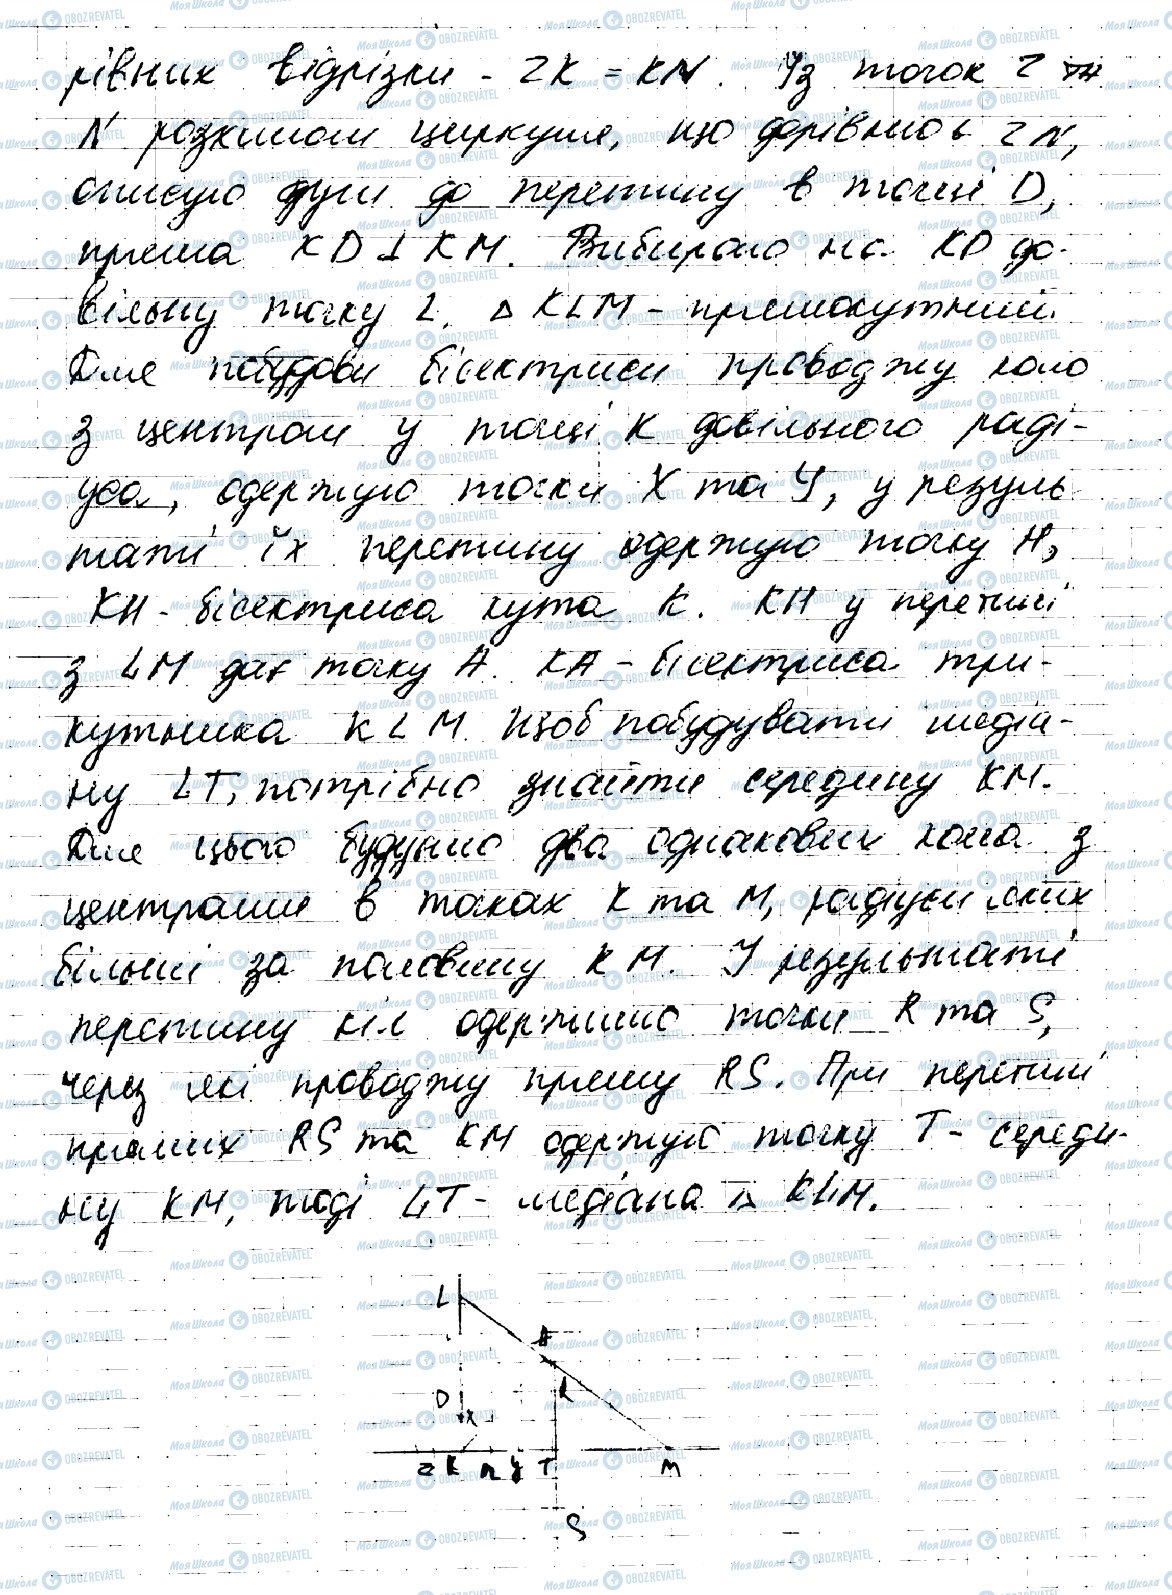 рівних відрізки - ZK = KN. Із точок Z та
N розхилом циркуля, що дорівнює ZN,
описую дуги до перетину в точці D,
пряма KD ⊥ KM. Вибираю на KD до-
вільну точку L. △ KLM - прямокутний.
Для побудови бісектриси проводжу коло
з центром у точці K довільного раді-
уса, одержую точки X та Y, у резуль
таті їх перетину одержую точку H,
KH - бісектриса кута K. KH у перетині
з LM дає точку A. KA - бісектриса три-
кутника KLM. Щоб побудувати медіа-
ну LT, потрібно знайти середину KM.
Для цього будуємо два однакових кола з
центрами в точках K та M, радіуси яких
більші за половину KM. У результаті
перетину кіл одержимо точки R та S,
через які проводжу пряму RS. При перетині
прямих RS та KM одержую точку T - середи-
ну KM, тоді LT - медіана △ KLM.
L
A
D
X
Z K N Y T M
S
МояШкола OBOZREVATEL